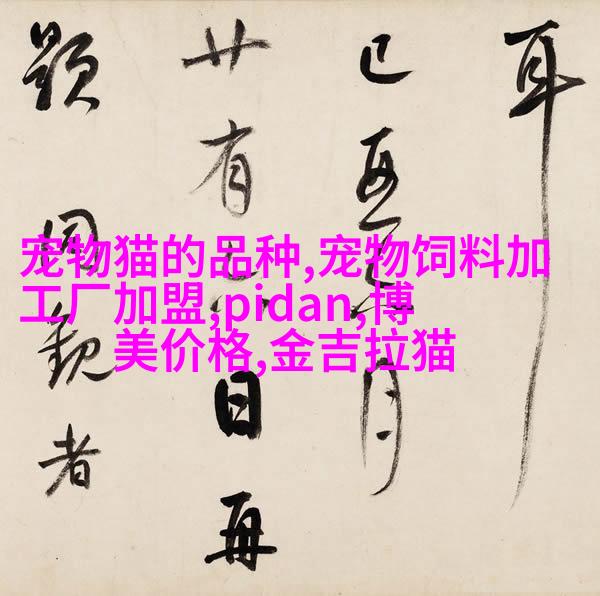 宠物猫的品种,宠物饲料加
工厂加盟,pidan,博
美价格,金吉拉猫
耳
已亥月
廿有日再
題同觀者